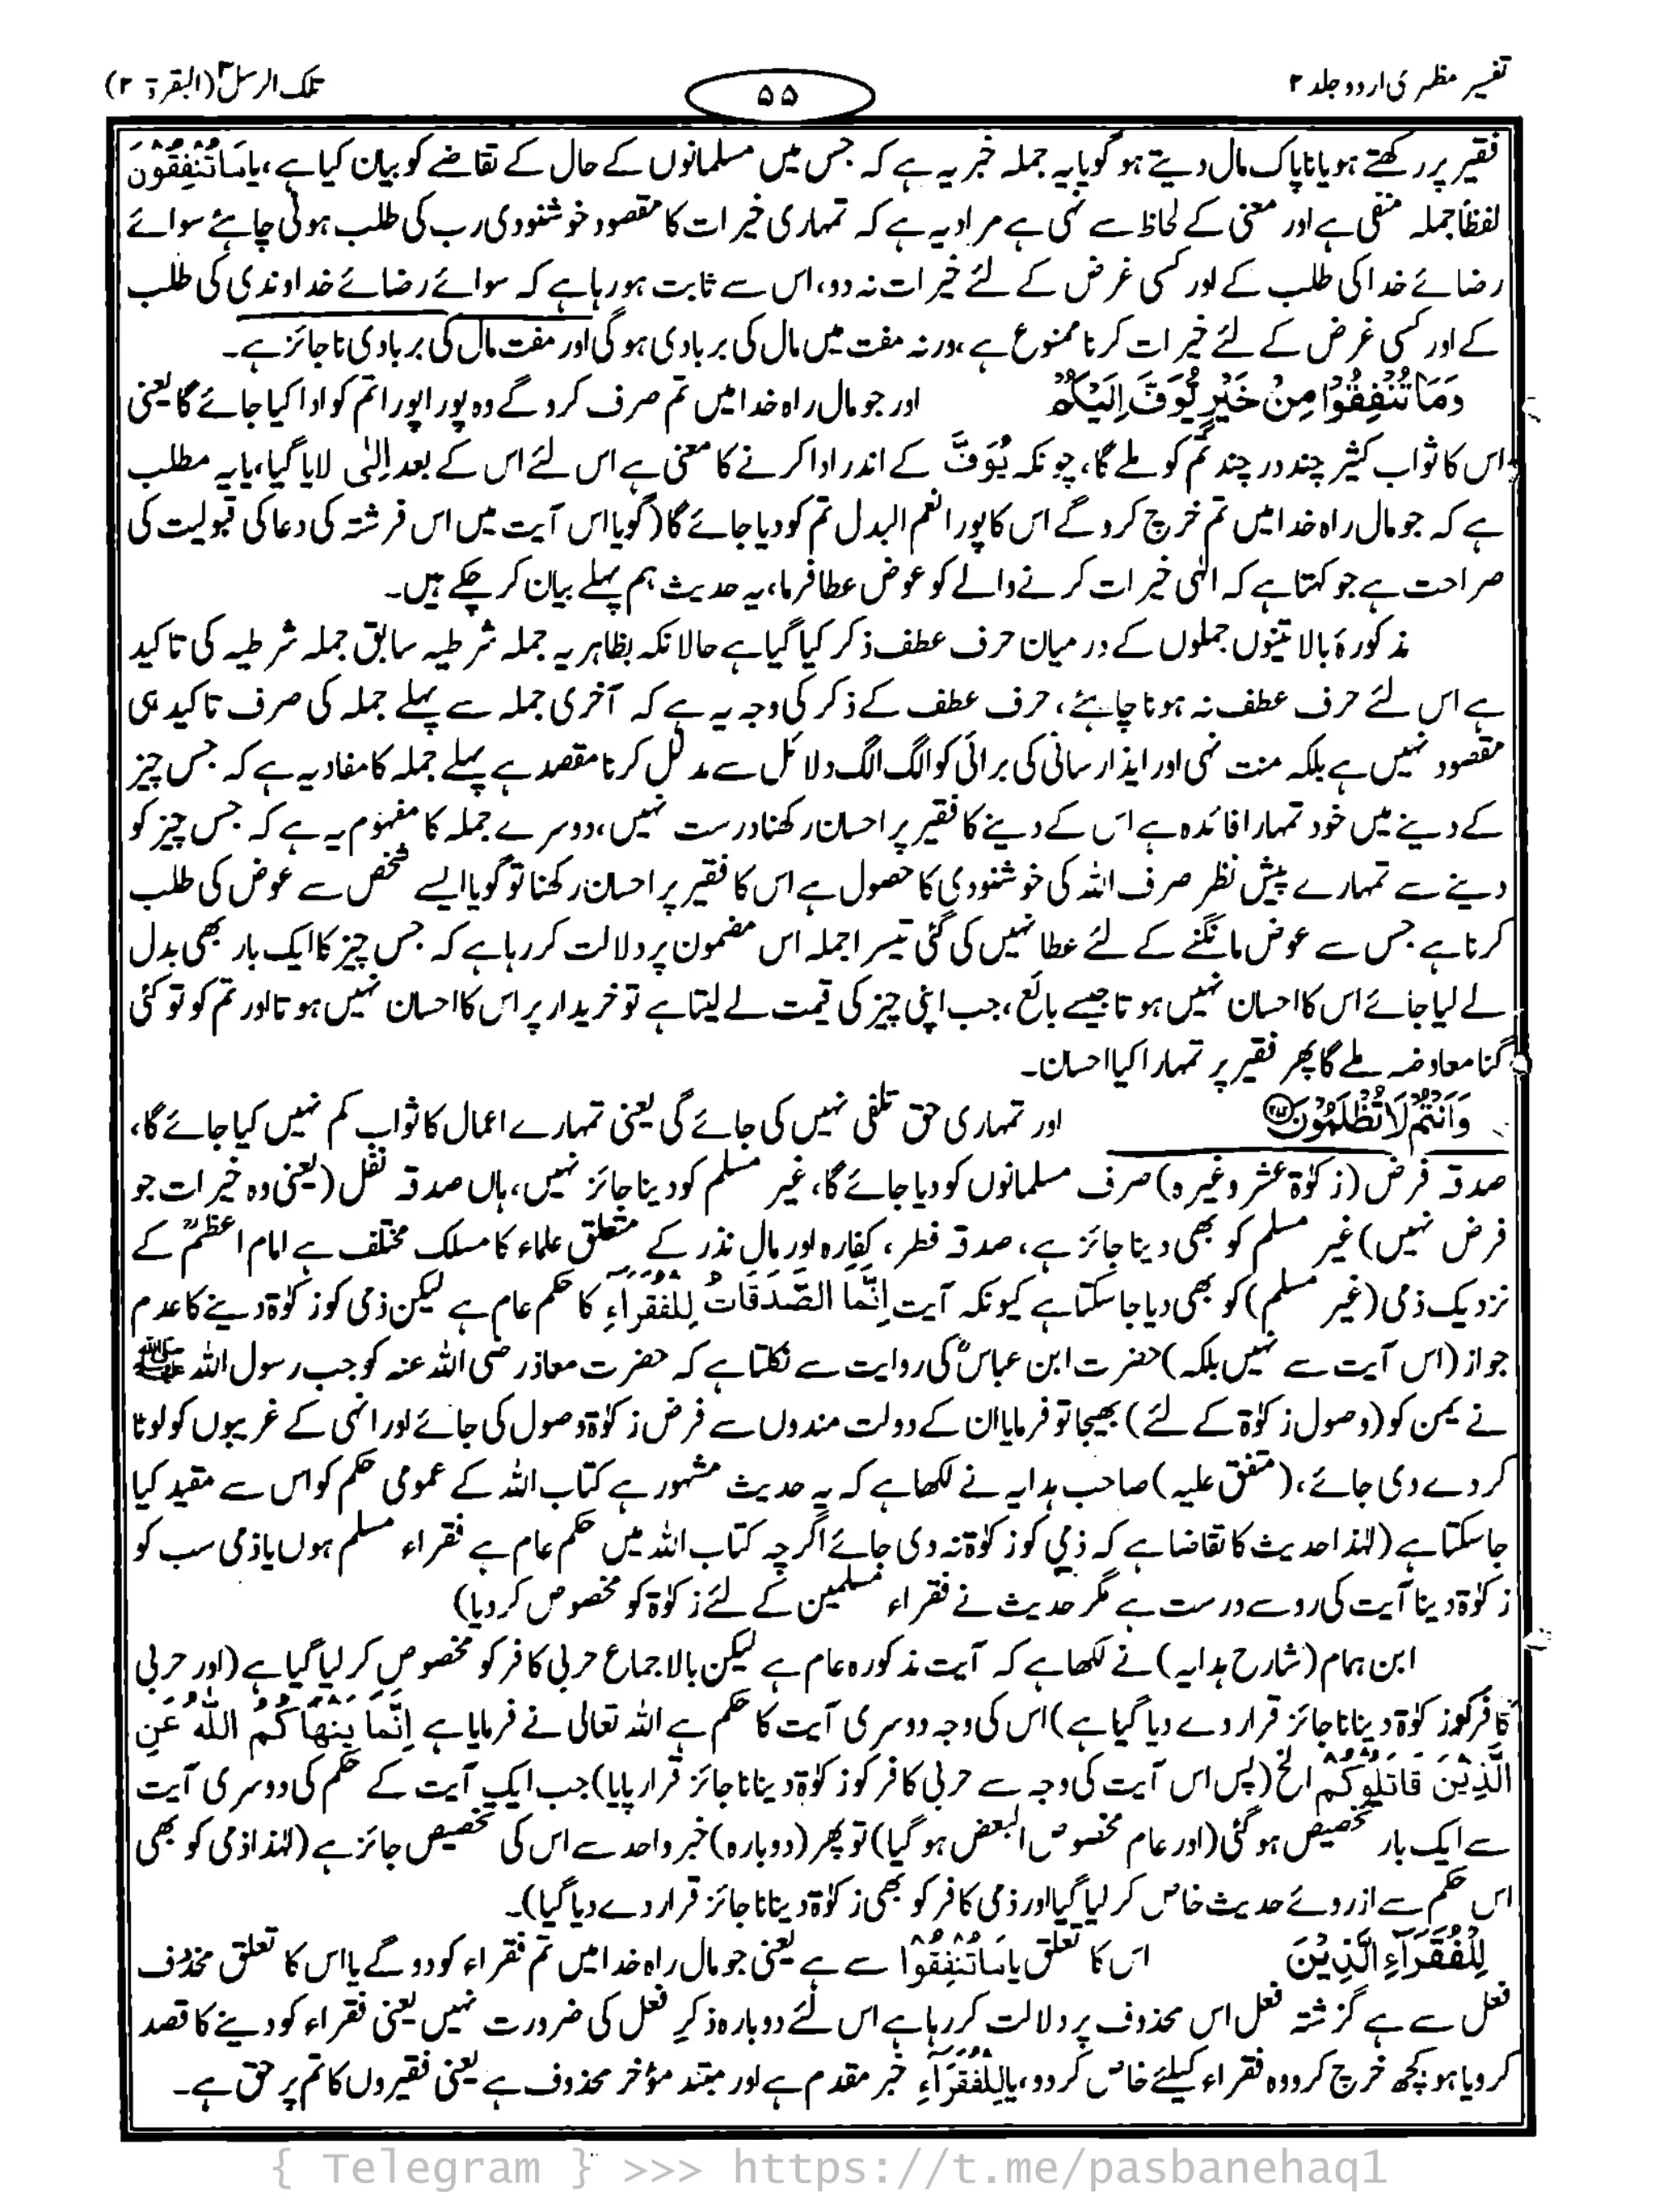 تفسیر مظہری اردو جلد ۲
۵۵
تلک الرسل ۳ (البقرۃ ۲)
فقیر پر رکھتے ہو یا ناپاک مال دیتے ہو گویا یہ جملہ خبریہ ہے کہ جس میں مسلمانوں کے حال کے تقاضے کو بیان کیا ہے، یا مَا تُنْفِقُوْنَ
لفظاً جملہ منفی ہے اور معنی کے لحاظ سے نہی ہے مراد یہ ہے کہ تمہاری خیرات کا مقصود خوشنودی رب کی طلب ہونی چاہئے سوائے
رضائے خدا کی طلب کے اور کسی غرض کے لئے خیرات نہ دو، اس سے ثابت ہو رہا ہے کہ سوائے رضائے خداوندی کی طلب
کے اور کسی غرض کے لئے خیرات کرنا ممنوع ہے، ورنہ مفت میں مال کی بربادی ہوگی اور مفت مال کی بربادی ناجائز ہے۔
وَمَا تُنْفِقُوْا مِنْ خَيْرٍ يُّوَفَّ اِلَيْكُمْ اور جو مال راہ خدا میں تم صرف کرو گے وہ پورا پورا تم کو ادا کیا جائے گا یعنی
اس کا ثواب کثیر چند در چند تم کو ملے گا، چونکہ يُوَفَّ کے اندر ادا کرنے کا معنی ہے اس لئے اس کے بعد اِلٰی لایا گیا، یا یہ مطلب
ہے کہ جو مال راہ خدا میں تم خرچ کرو گے اس کا پورا نعم البدل تم کو دیا جائے گا (گویا اس آیت میں اس فرشتہ کی دعا کی قبولیت کی
صراحت ہے جو کہتا ہے کہ الٰہی خیرات کرنے والے کو عوض عطا فرما، یہ حدیث ہم پہلے بیان کر چکے ہیں۔
مذکورۂ بالا تینوں جملوں کے درمیان حرف عطف ذکر کیا گیا ہے حالانکہ بظاہر یہ جملہ شرطیہ سابق جملہ شرطیہ کی تاکید
ہے اس لئے حرف عطف نہ ہونا چاہئے، حرف عطف کے ذکر کی وجہ یہ ہے کہ آخری جملہ سے پہلے جملہ کی صرف تاکید ہی
مقصود نہیں ہے بلکہ منت نہی اور ایذار سانی کی برائی کو الگ الگ دلائل سے مدلل کرنا مقصد ہے پہلے جملہ کا مفاد یہ ہے کہ جس چیز
کے دینے میں خود تمہارا فائدہ ہے اس کے دینے کا فقیر پر احسان رکھنا درست نہیں، دوسرے جملہ کا مفہوم یہ ہے کہ جس چیز کو
دینے سے تمہارے پیش نظر صرف اللہ کی خوشنودی کا حصول ہے اس کا فقیر پر احسان رکھنا تو گویا ایسے شخص سے عوض کی طلب
کرنا ہے جس سے عوض مانگنے کے لئے عطا نہیں کی گئی تیسرا جملہ اس مضمون پر دلالت کر رہا ہے کہ جس چیز کا ایک بار بھی بدل
لے لیا جائے اس کا احسان نہیں ہوتا جیسے بائع، جب اپنی چیز کی قیمت لے لیتا ہے تو خریدار پر اس کا احسان نہیں ہوتا اور تم کو تو کئی
گنا معاوضہ ملے گا پھر فقیر پر تمہارا کیا احسان۔
وَاَنْتُمْ لَا تُظْلَمُوْنَ ۲۷۲ اور تمہاری حق تلفی نہیں کی جائے گی یعنی تمہارے اعمال کا ثواب کم نہیں کیا جائے گا،
صدقہ فرض (زکوٰۃ عشر وغیرہ) صرف مسلمانوں کو دیا جائے گا، غیر مسلم کو دینا جائز نہیں، ہاں صدقہ نفل (یعنی وہ خیرات جو
فرض نہیں) غیر مسلم کو بھی دینا جائز ہے، صدقہ فطر، کفارہ اور مال نذر کے متعلق علماء کا مسلک مختلف ہے امام اعظمؒ کے
نزدیک ذمی (غیر مسلم) کو بھی دیا جا سکتا ہے کیونکہ آیت اِنَّمَا الصَّدَقَاتُ لِلْفُقَرَآءِ کا حکم عام ہے لیکن ذمی کو زکوٰۃ دینے کا عدم
جواز (اس آیت سے نہیں بلکہ) حضرت ابن عباسؓ کی روایت سے نکلتا ہے کہ حضرت معاذ رضی اللہ عنہ کو جب رسول اللہ ﷺ
نے یمن کو (وصول زکوٰۃ کے لئے) بھیجا تو فرمایا ان کے دولت مندوں سے فرض زکوٰۃ وصول کی جائے اور انہی کے غریبوں کو لوٹا
کر دے دی جائے، (متفق علیہ) صاحب ہدایہ نے لکھا ہے کہ یہ حدیث مشہور ہے کتاب اللہ کے عمومی حکم کو اس سے مقید کیا
جا سکتا ہے (لہٰذا حدیث کا تقاضا ہے کہ ذمی کو زکوٰۃ نہ دی جائے اگرچہ کتاب اللہ میں حکم عام ہے فقراء مسلم ہوں یا ذمی سب کو
زکوٰۃ دینا آیت کی رو سے درست ہے مگر حدیث نے فقراء مسلمین کے لئے زکوٰۃ کو مخصوص کر دیا)
ابن ہمام (شارح ہدایہ) نے لکھا ہے کہ آیت مذکورہ عام ہے لیکن بالاجماع حربی کافر کو مخصوص کر لیا گیا ہے (اور حربی
کافر کو زکوٰۃ دینا ناجائز قرار دے دیا گیا ہے) اس کی وجہ دوسری آیت کا حکم ہے اللہ تعالی نے فرمایا ہے اِنَّمَا يَنْهَاكُمُ اللّٰهُ عَنِ
الَّذِيْنَ قَاتَلُوْكُمْ الخ (پس اس آیت کی وجہ سے حربی کافر کو زکوٰۃ دینا ناجائز قرار پایا) جب ایک آیت کے حکم کی دوسری آیت
سے ایک بار تخصیص ہو گئی (اور عام مخصوص البعض ہو گیا) تو پھر (دوبارہ) خبر واحد سے اس کی تخصیص جائز ہے (لہٰذا ذمی کو بھی
اس حکم سے ازروئے حدیث خاص کر لیا گیا اور ذمی کافر کو بھی زکوٰۃ دینا ناجائز قرار دے دیا گیا)۔
لِلْفُقَرَآءِ الَّذِيْنَ اس کا تعلق یا مَا تُنْفِقُوْا سے ہے یعنی جو مال راہ خدا میں تم فقراء کو دو گے یا اس کا تعلق محذوف
فعل سے ہے گزشتہ فعل اس محذوف پر دلالت کر رہا ہے اس لئے دوبارہ ذکرِ فعل کی ضرورت نہیں یعنی فقراء کو دینے کا قصد
کرو یا جو کچھ خرچ کرو وہ فقراء کیلئے خاص کر دو، یا لِلْفُقَرَآءِ خبر مقدم ہے اور مبتدا مؤخر محذوف ہے یعنی فقیروں کا تم پر حق ہے۔
{ Telegram } >>> https://t.me/pasbanehaq1